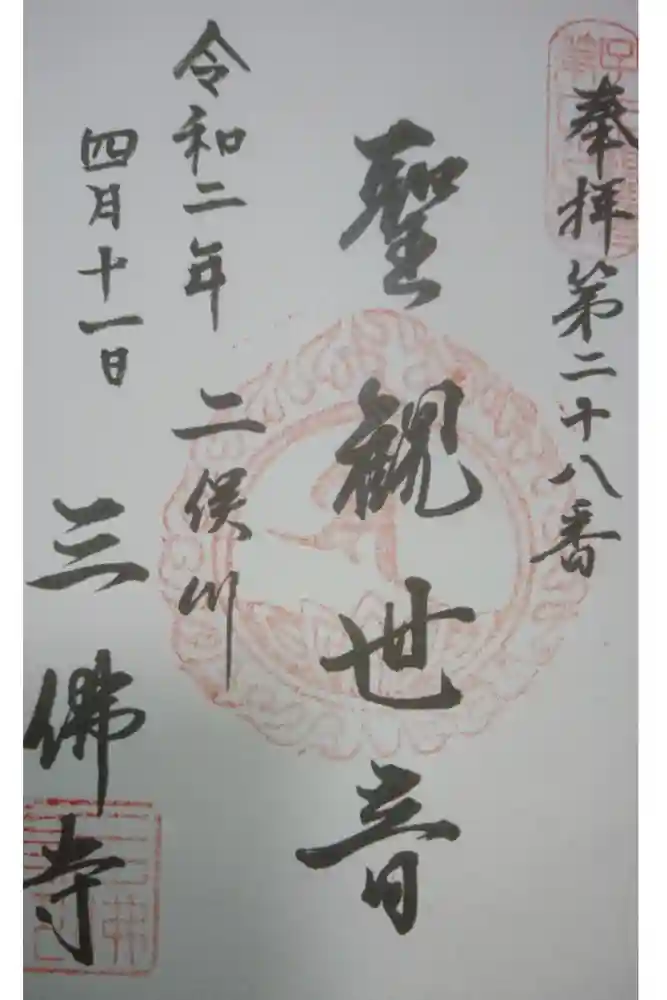 奉拝第二十八番
聖観世音
令和二年
二俣川
四月十一日
三佛寺